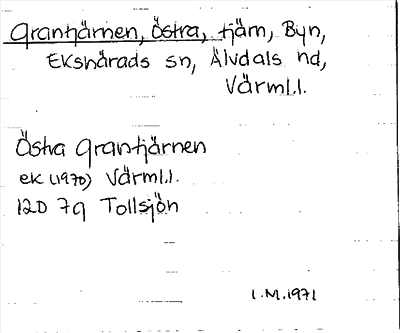 Grantjärnen, Östra, tjärn, Byn,
Ekshärads sn, Älvdals nd,
Värml.l.
Östra Grantjärnen
ek (1970) Värml.l.
12D 7g Tollsjön
I.M. 1971